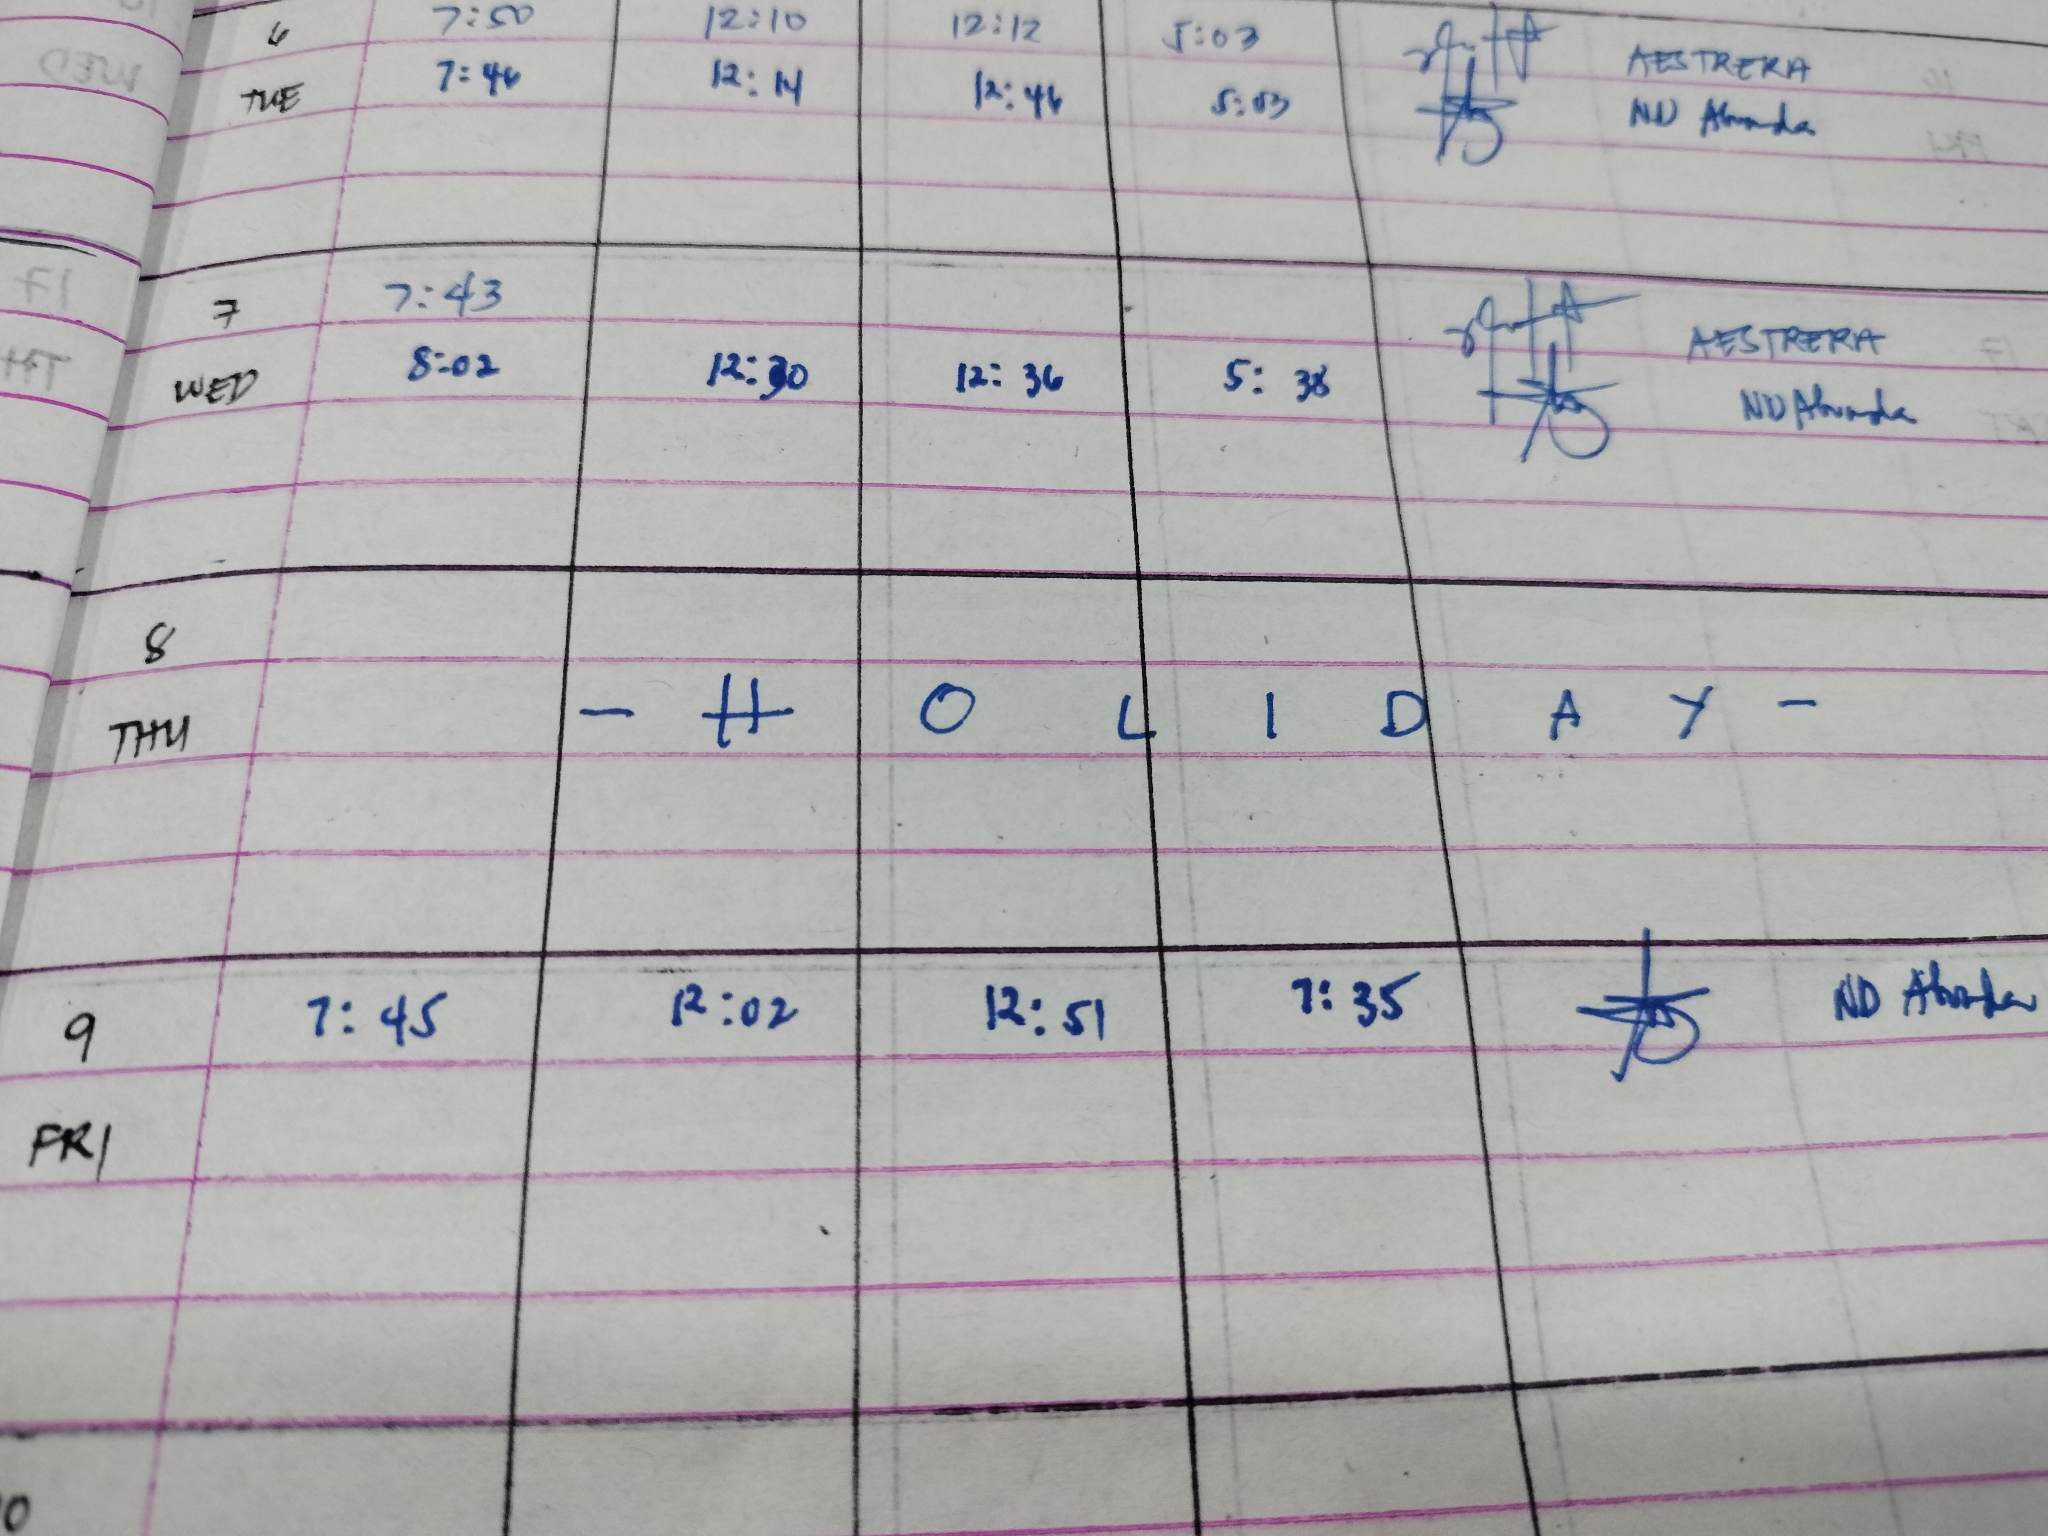 6 7:50 12:10 12:12 5:03 AESTRERA
TUE 7:46 12:14 12:46 5:03 ND
7 7:43 AESTRERA
WED 8:02 12:30 12:36 5:38 ND
8
THU - H O L I D A Y -
9 7:45 12:02 12:51 7:35 ND
FRI
10